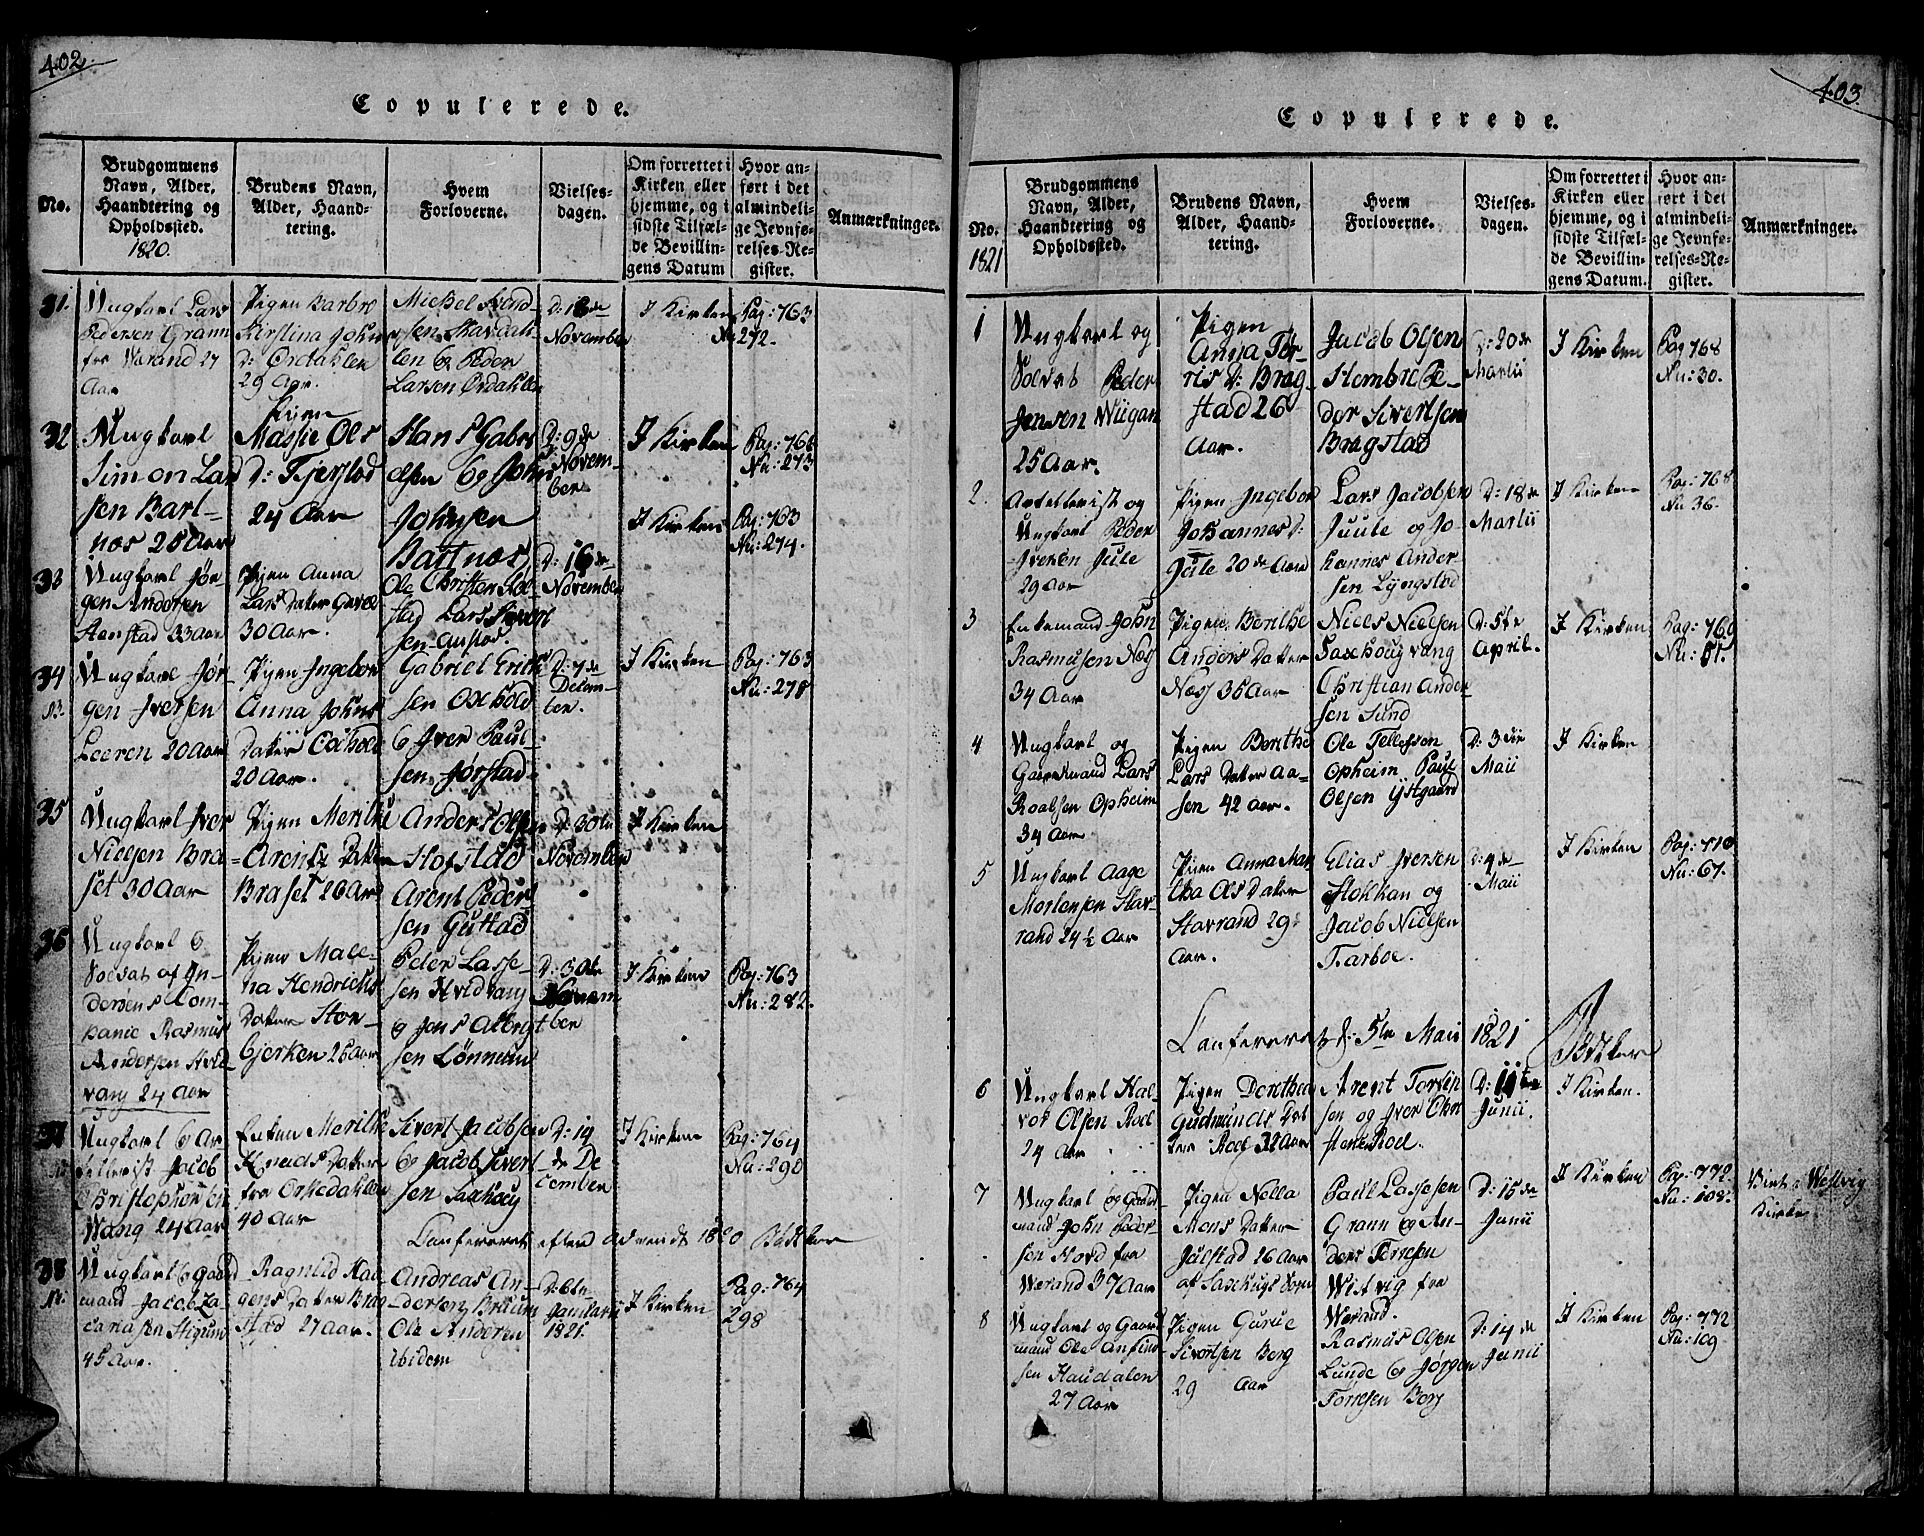 402.
Copulerede.
No.
Brudgommens Navn, Alder, Haandtering og Opholdssted.
1820.
Brudens Navn, Alder, Haandtering.
Hvem Forloverne.
Vielsesdagen.
Om forrettet i Kirken eller hjemme, og i sidste Tilfælde Bevillingens Datum
Hvor anført i det almindelige Jevnførelses-Register.
Anmærkninger.
31.
Ungkarl Lars
Pedersen Grann
fra Værand 27
Aar
Pigen Barbro
Kirstina Johns
D: Ordahlen
29 Aar.
Michel Svend
sen Skavdah
len & Peder
Larsen Ordahlen
D: 18de
November
I Kirken
Pag: 763
Nu 272.
32
Ungkarl
Simon Lar
sen Bart-
næs 28 Aar
Pigen
Massie Ols
D: Tjerstad
24 Aar
Hans Gabri
elsen & John
Johnsen
Bartnæs,
D: 9de
Novem-
ber
I Kirken
Pag: 766
Nu: 273
33
Ungkarl Jør-
gen Andersen
Aunstad 33 Aar
Pigen Anna
Lars Dater
30 Aar.
Ole Christensen
stad Lars Sivert
sen Austad.
D: 16de
November
I Kirken
Pag: 763
Nu: 274.
34
Ungkarl Jør-
gen Iversen
Leeren 20 Aar
Pigen Ingebor
Anna Johns
Dater Oxhold
20 Aar.
Gabriel Erich
sen Oxhold
& Iver Paul-
sen Jørstad
D: 7de
Decem-
ber.
I Kirken
Pag: 763
Nu: 278
35
Ungkarl Iver
Nielsen Bra-
set 30 Aar
Pigen Merithe
Arents Dater
Braset 26 Aar
Anders Olsen
Hofstad
Arent Peder
sen Gustad
D: 30te
November
I Kirken
36
Ungkarl &
Soldat af An-
dersens Com-
panie Rasmus
Andersen Hvid
vang 24 Aar
Pigen Male-
na Hendrichs
Dater Stor-
bjerken 25 Aar
Peder Lasse-
sen Hvidvang
& Jens Albrigt
sen Lønnum
D: 30te
Novem
ber
I Kirken
Pag: 763
Nu: 282.
37
Ungkarl & Ar
tellerist Jacob
Christophersen
Wang 24 Aar
Enken Merithe
Knuds Dater
fra Orkedahlen
40 Aar
Sivert Jacobsen
& Jacob Sivert
sen Saxhoug
D: 14
de De
cember
I Kirken
Pag: 764
Nu: 290
Confereret efter Advendt 1820 Bødtker
38
Ungkarl & Gaard
mand Jacob Za
cariasen Stigum
45 Aar.
Ragnild Haa
gens Dater Brag
stad 27 Aar.
Andreas An-
dersen Bruum
Ole Andersen
ibidem
D: 6te
Januarii
1821.
I Kirken
Pag: 764
298
403.
Copulerede.
No.
1821
Brudgommens Navn, Alder, Haandtering og Opholdssted.
Brudens Navn, Alder, Haandtering.
Hvem Forloverne.
Vielsesdagen.
Om forrettet i Kirken eller hjemme, og i sidste Tilfælde Bevillingens Datum.
Hvor anført i det almindelige Jevnførelses-Register.
Anmærkninger.
1
Ungkarl og
Soldat Peder
Jensen Wiigan
25 Aar.
Pigen
Anna Tør-
ris D: Brag-
stad 26
Aar.
Jacob Olsen
Hembre Pe-
der Sivertsen
Bragstad
D: 20de
Martii
I Kirken
Pag 768
Nu: 30.
2.
Artellerist og
Ungkarl Peder
Iversen Jule
29 Aar
Pigen Ingebor
Johannes D:
Jule 20de Aar
Lars Jacobsen
Juule og Jo-
hannes Ander-
sen Lyngstad
D: 18de
Martii
I Kirken
Pag: 768
Nu 36.
3
Enkemand John
Rasmusen Næs
34 Aar
Pigen Berithe
Anders Dater
Næss 35 Aar
Niels Nielsen
Saxhougvang
Christian Ander
sen Sund
D: 5te
April.
I Kirken
Pag: 769
Nu: 51.
4
Ungkarl og
Gaardmand Lars
Roalsen Opheim
34 Aar
Pigen Berithe
Lars Dater Aa-
sen 42 Aar.
Ole Tellefsen
Opheim Paul
Olsen Ystgaard
D: 3die
Maii
I Kirken
5
Ungkarl Aage
Mortensen Stav-
rand 24 ½ Aar
Pigen Anna Mar
tha Ols Dater
Stavrand 29
Aar.
Elias Iversen
Stokkan og
Jacob Nielsen
Tarboe.
D: 4de
Maii
I Kirken
Pag: 770
Nu: 67.
Confereret d: 5te Maii 1821 Bødtker
6
Ungkarl Hal-
vor Olsen Roel
24 Aar
Pigen Dorethea
Gudmunds Dat
ter Roel 32 Aar
Arent Torsten
sen og Iver Chri
stensen Roel.
D: 11te
Junii.
I Kirken.
7
Ungkarl & Gaard
mand John Peder-
sen Hovd fra
Værand 37 Aar
Pigen Nella
Mons Dater
Julstad 26 Aar
af Saxhugs Sogn
Paul Lassesen
Grann & An-
ders Torresen
Wistvig fra
Værand.
D: 15de
Junii
I Kirken
Pag: 772.
Nu: 108.
Viet i Westvig
Kirke
8
Ungkarl og Gaard
mand Ole Anfind-
sen Haudalen
27 Aar
Pigen Gurue
Sivertsen Berg
29 Aar
Rasmus Olsen
Lunde & Jørgen
Torresen Berg
D: 14de
Junii
I Kirken
Pag: 772
Nu: 109